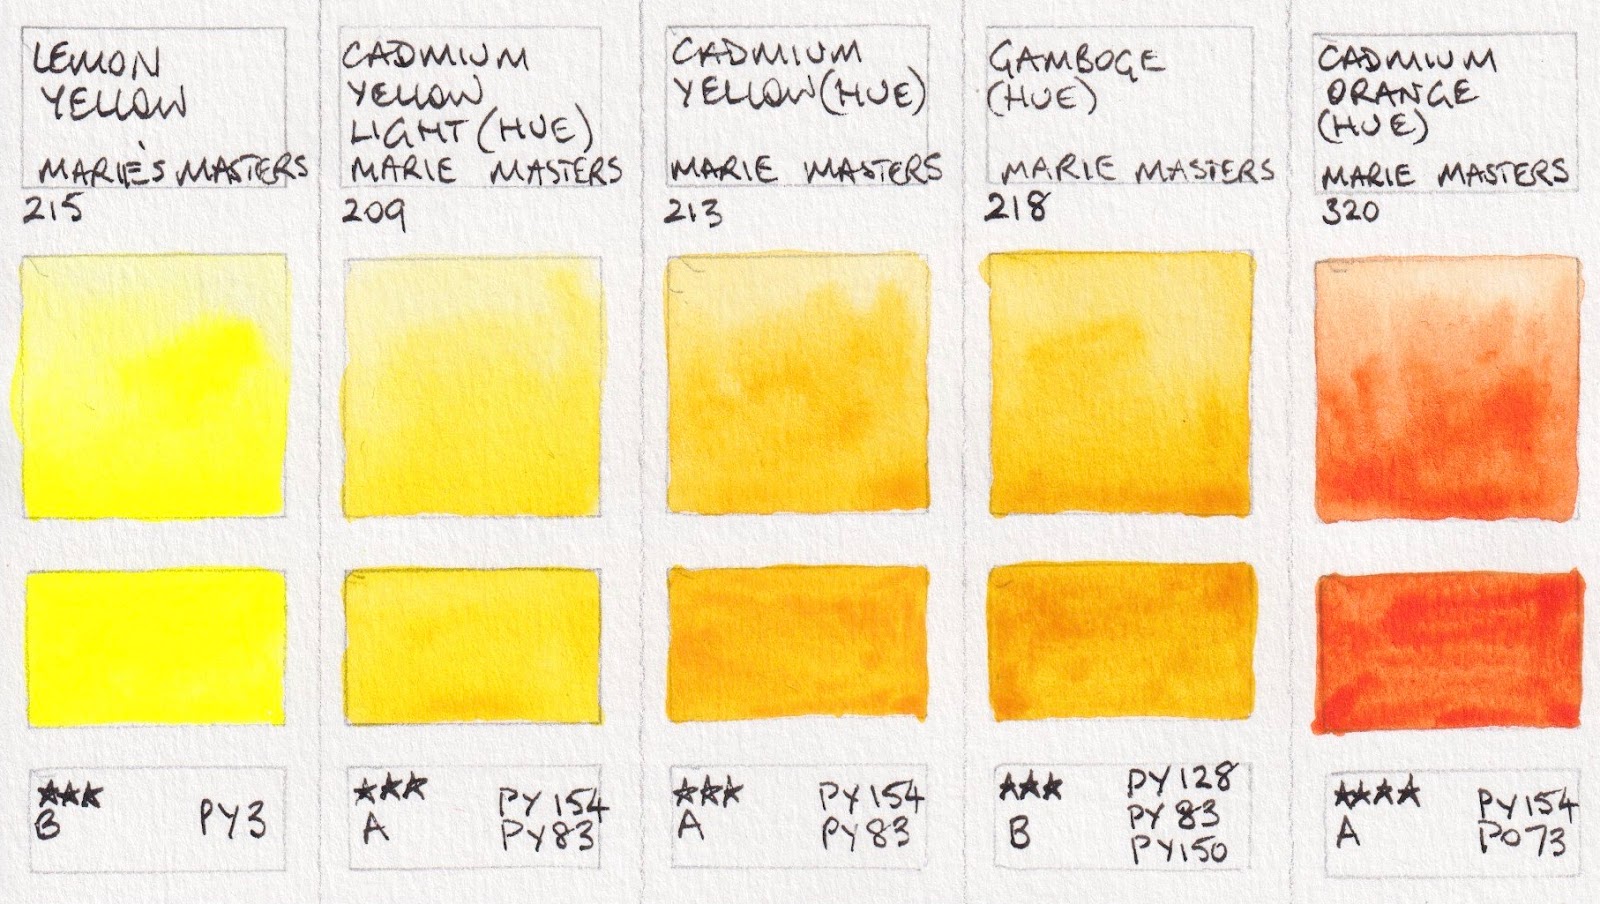 LEMON
YELLOW
MARIE'S MASTERS
215
CADMIUM
YELLOW
LIGHT (HUE)
MARIE MASTERS
209
CADMIUM
YELLOW (HUE)
MARIE MASTERS
213
GAMBOGE
(HUE)
MARIE MASTERS
218
CADMIUM
ORANGE
(HUE)
MARIE MASTERS
320
★★★
B
PY3
★★★
A
PY154
PY83
★★★
A
PY154
PY83
★★★
B
PY128
PY83
PY150
★★★★
A
PY154
PO73